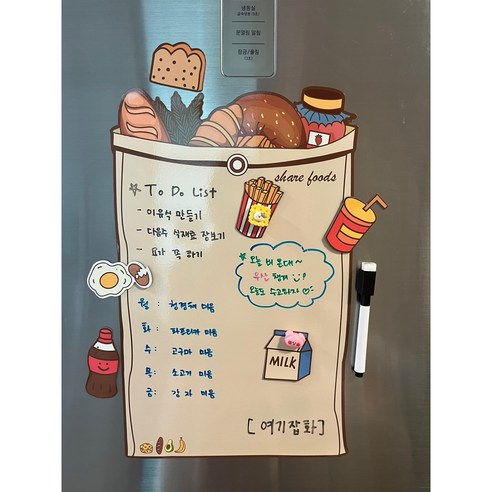 냉동실
온열팅 알림
잠금/풀림
share foods
☆ To Do List
- 이유식 만들기
- 다음주 식재료 장보기
- 요가 꼭 하기
★ 오늘 비 온대~
우산 챙겨 ;)?
오늘도 수고하자 ♡
월 : 청경채 미음
화 : 파프리카 미음
수 : 고구마 미음
목 : 소고기 미음
금 : 감자 미음
MILK
[여기잡화]